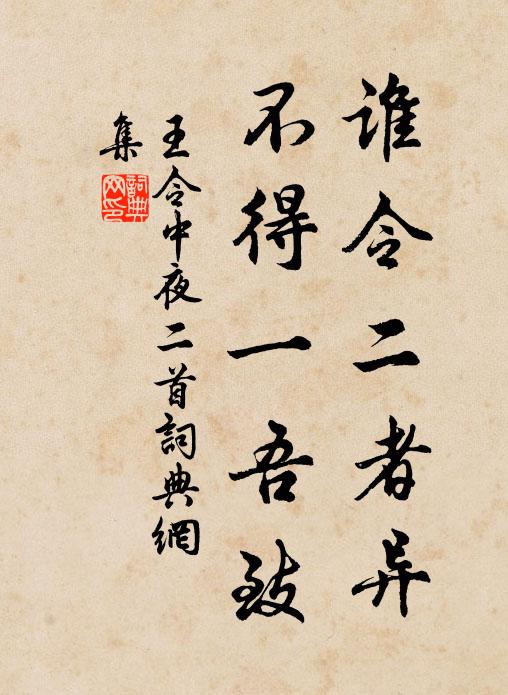 谁令二者异
不得一吾致
王令中夜二首詞典網
集
詞典网印